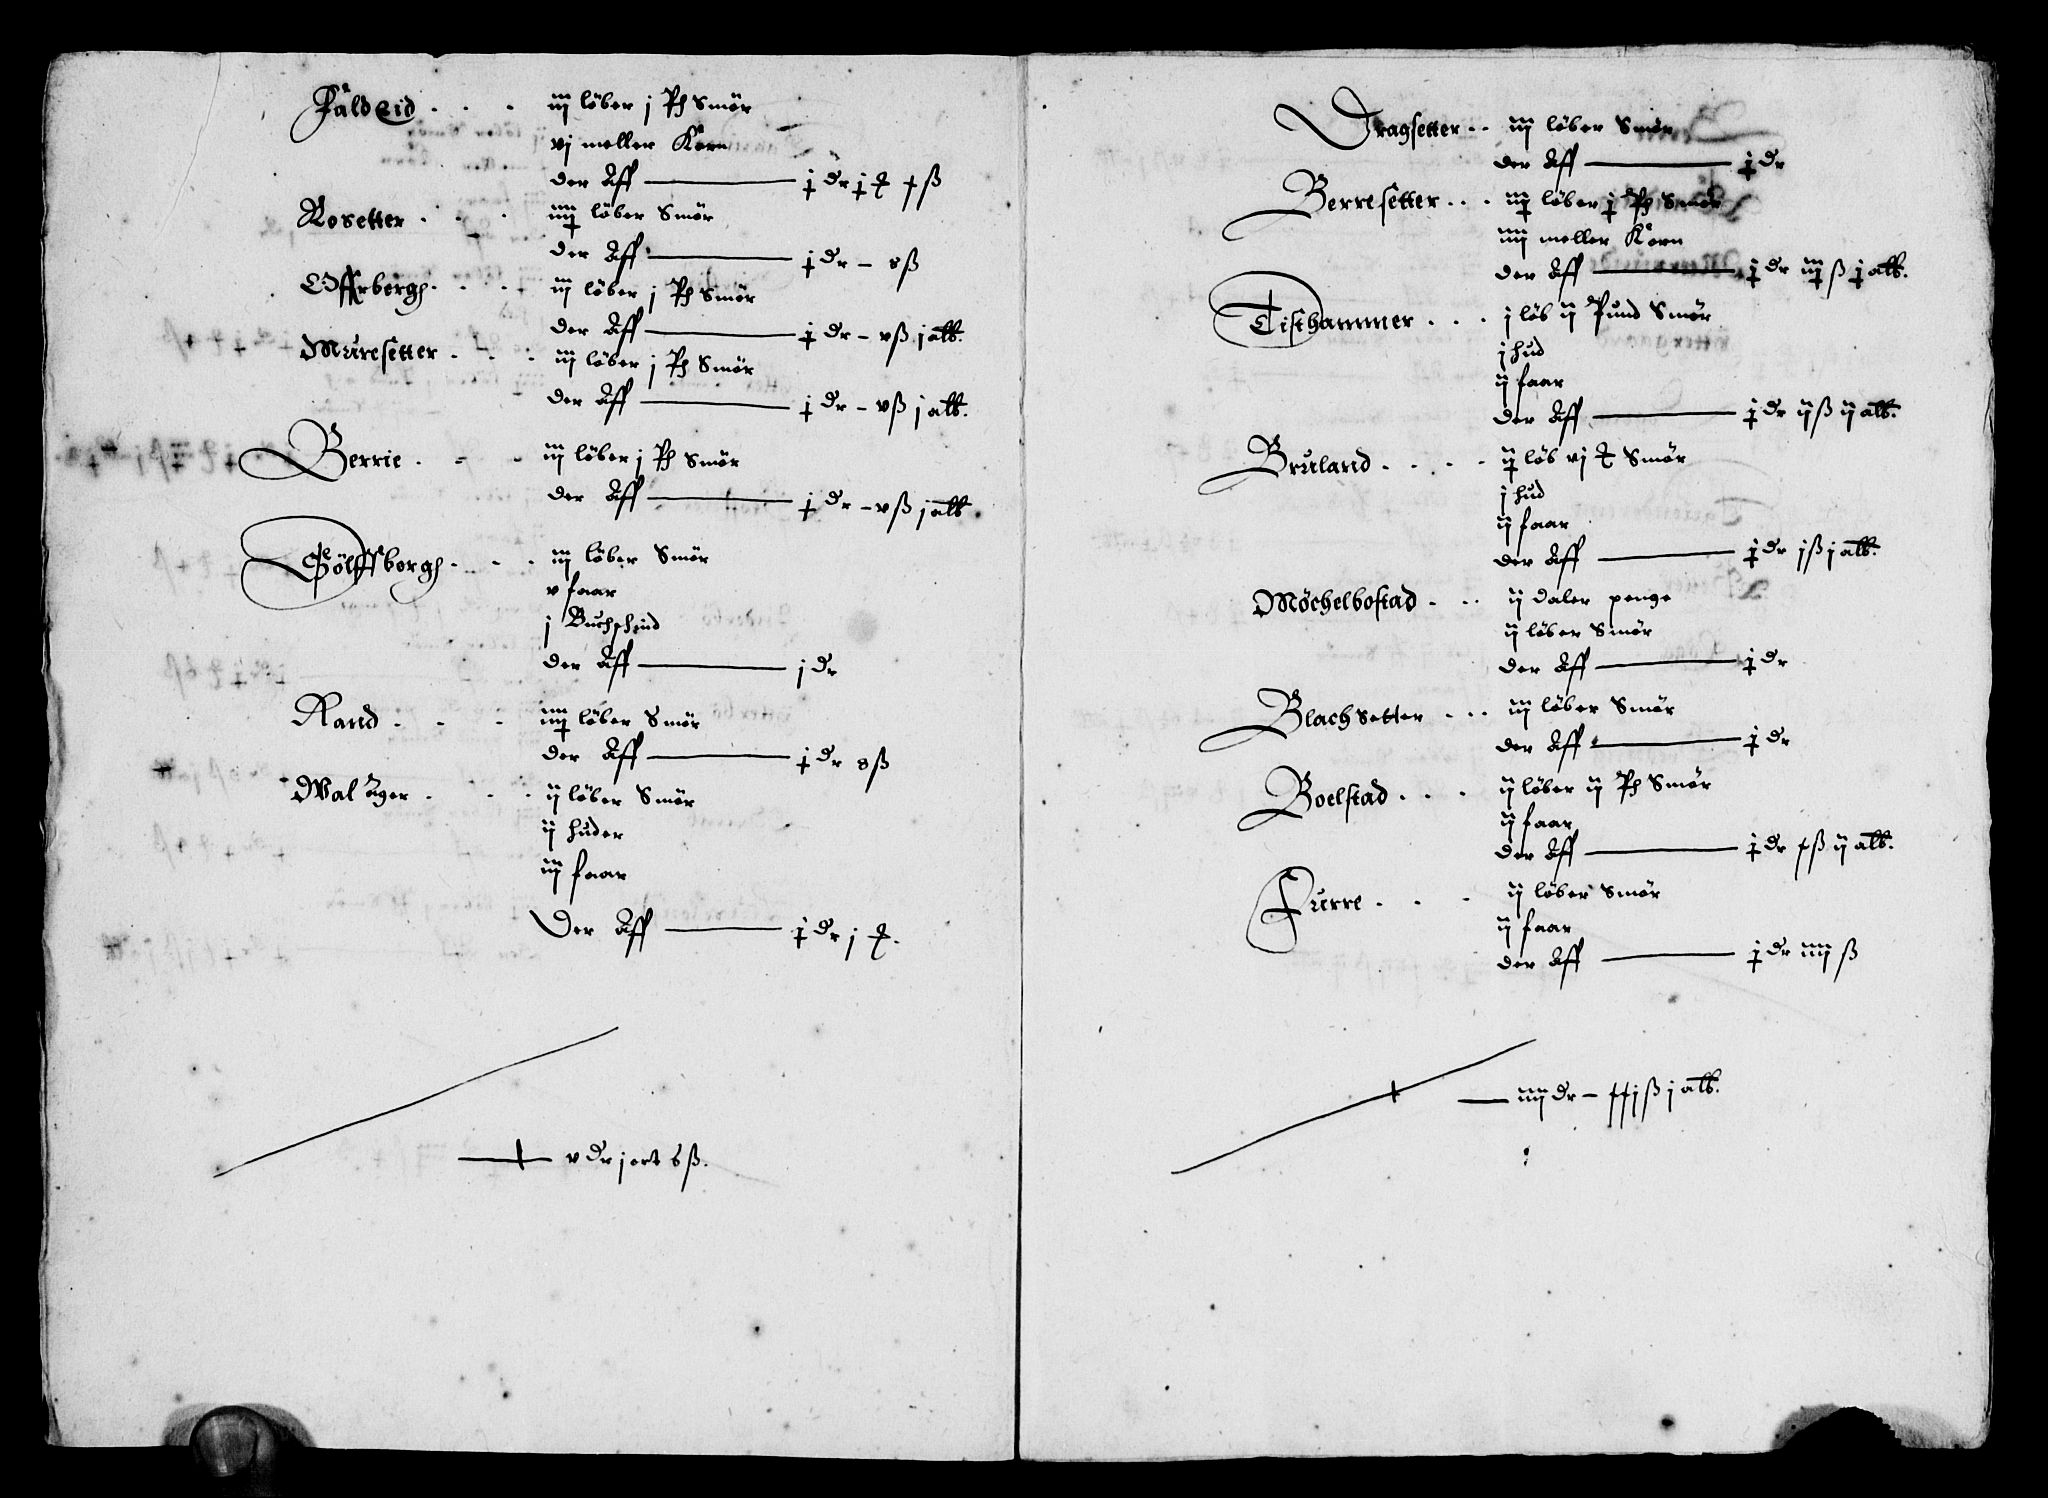 Fåldeid . . . iij løber j Pd Smør
vj meller Korn
der Aff ——— j dr j ƭ
Rosetter . . . iiij løber Smør
der Aff ——— j dr – 8 ß
iij løber j Pd Smør
der Aff ——— j dr – v ß j alb.
Muresetter . . . iij løber j Pd Smør
der Aff ——— j dr – v ß j alb.
Berrie . . . iij løber j Pd Smør
der Aff ——— j dr – v ß j alb
Gölffsborgh . . . iij løber Smør
v faar
j Buchshind
der Aff ——— j dr
Rand . . . iiij løber Smør
der Aff ——— j dr 8 ß
Walager . . . ij løber Smør
ij huder
iij faar
Der Aff ——— j dr j ƭ.
——— v dr j ort 6 ß.
Dragsetter . . iij løber Smør
der Aff ——— j dr
Berresetter . . . iij løber j Pd Smør
iiij meller Korn
der Aff ——— j dr iij ß j alb.
Tisthammer . . . j løb ij Pund Smør
j hud
ij faar
der Aff ——— j dr ij ß ij alb.
Bruland . . . . ij løb vj ƭ Smør
j hud
ij faar
der Aff ——— j dr j ß j alb.
Møchelbostad . . . ij daler penge
ij løber Smør
der Aff ——— j dr
Blachsetter . . . iij løber Smør
der Aff ——— j dr
Boelstad . . . ij løber ij Pd Smør
ij faar
der Aff ——— j dr ß ij alb.
Furre . . . ij løber Smør
ij faar
der Aff ——— j dr iiij ß
——— iiij dr – ß j alb.